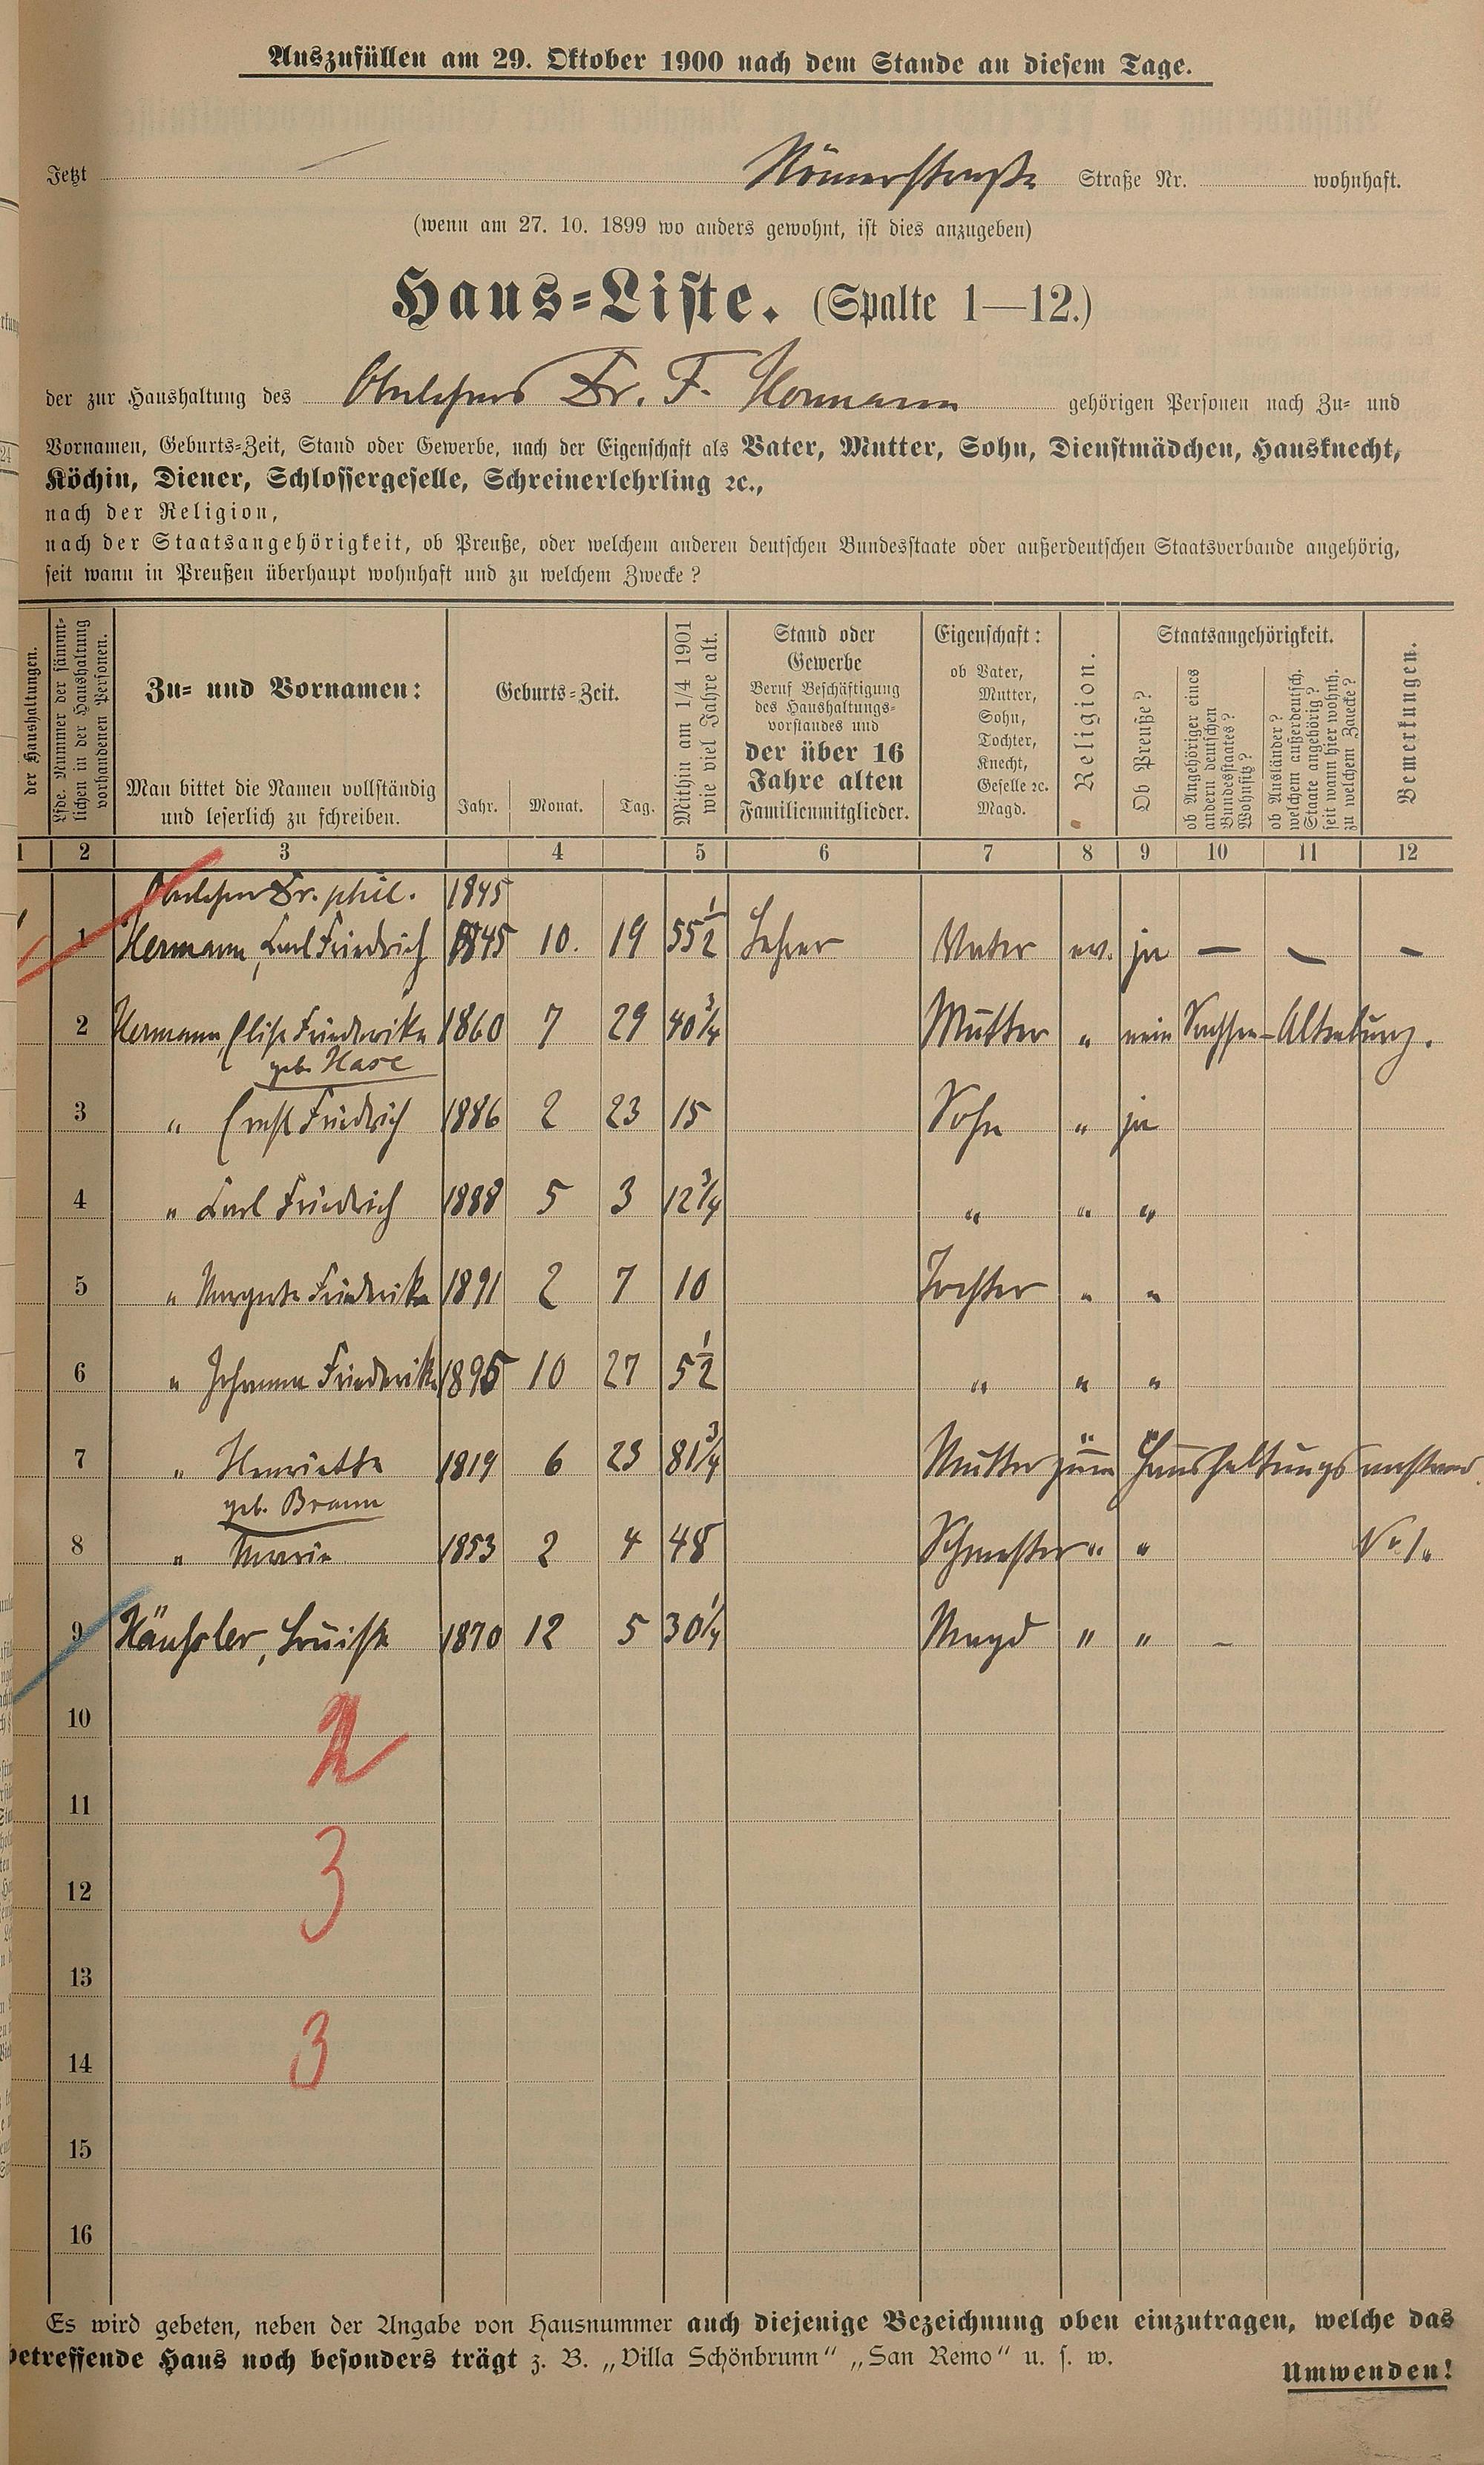 Auszufüllen am 29. Oktober 1900 nach dem Stande an diesem Tage.
Jetzt Römerstraße Straße Nr. wohnhaft.
(wenn am 27. 10. 1899 wo anders gewohnt, ist dies anzugeben)
Haus=Liste. (Spalte 1—12.)
der zur Haushaltung des Oberlehrers Dr. F. Hermann gehörigen Personen nach Zu- und
Vornamen, Geburts=Zeit, Stand oder Gewerbe, nach der Eigenschaft als Vater, Mutter, Sohn, Dienstmädchen, Hausknecht,
Köchin, Diener, Schlossergeselle, Schreinerlehrling ꝛc.,
nach der Religion,
nach der Staatsangehörigkeit, ob Preuße, oder welchem anderen deutschen Bundesstaate oder außerdeutschen Staatsverbande angehörig,
seit wann in Preußen überhaupt wohnhaft und zu welchem Zwecke?
der Haushaltungen.
Lfde. Nummer der sämmt-
lichen in der Haushaltung
vorhandenen Personen.
Zu= und Vornamen:
Man bittet die Namen vollständig
und leserlich zu schreiben.
Geburts=Zeit.
Jahr. Monat. Tag.
Mithin am 1/4 1901
wie viel Jahre alt.
Stand oder
Gewerbe
Beruf Beschäftigung
des Haushaltungs-
vorstandes und
der über 16
Jahre alten
Familienmitglieder.
Eigenschaft:
ob Vater,
Mutter,
Sohn,
Tochter,
Knecht,
Geselle ꝛc.
Magd.
Religion.
Staatsangehörigkeit.
Ob Preuße?
ob Angehöriger eines
andern deutschen
Bundesstaates?
Wohnsitz?
ob Ausländer?
welchem außerdeutsch.
Staate angehörig?
seit wann hier wohnh.
zu welchem Zwecke?
Bemerkungen.
1 2 3 4 5 6 7 8 9 10 11 12
Oberlehrer Dr. phil. 1845
1 Hermann, Karl Friedrich 1845 10. 19 55 1/2 Lehrer Vater ev. ja — — —
2 Hermann, Elise Friederike 1860 7 29 40 3/4 Mutter " nein Sachsen-Altenburg.
geb. Hase
3 " Ernst Friedrich 1886 2 23 15 Sohn " ja
4 " Karl Friedrich 1888 5 3 12 3/4 " " "
5 " Margarete Friederike 1891 2 7 10 Tochter " "
6 " Johanna Friederike 1895 10 27 5 1/2 " " "
7 " Henriette 1819 6 23 81 3/4 Mutter zum " Haushaltungsvorstand
geb. Braun
8 " Marie 1853 2 4 48 Schwester " " No 1.
9 Häußler, Luise 1870 12 5 30 1/4 Magd " " –
10
2
11
3
12
13
3
14
15
16
Es wird gebeten, neben der Angabe von Hausnummer auch diejenige Bezeichnung oben einzutragen, welche das
betreffende Haus noch besonders trägt z. B. „Villa Schönbrunn“ „San Remo“ u. s. w.
Umwenden!